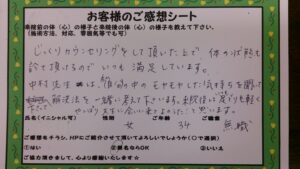 お客様のご感想シート
来院前の体（心）の様子と来院後の体（心）の様子を教えて下さい。
（施術方法、対応、雰囲気等でも可）
じっくりカウンセリングをして頂いた上で、体のバランスも
診て頂けるので いつも満足しています。
中村先生は、僕の中のモヤモヤした気持ちを聞いて
解決法を一緒に考えて下さいます。来院後は
やっぱり
品名（イニシャル可）
ご性別
ご年齢
ご職業
女
34
無職
ご感想をチラシ、HPにご紹介させて頂いてよろしいでしょうか（○で選択）
①はい
②匿名ならOK
③いいえ
ご協力頂きまして、心より感謝いたします☆